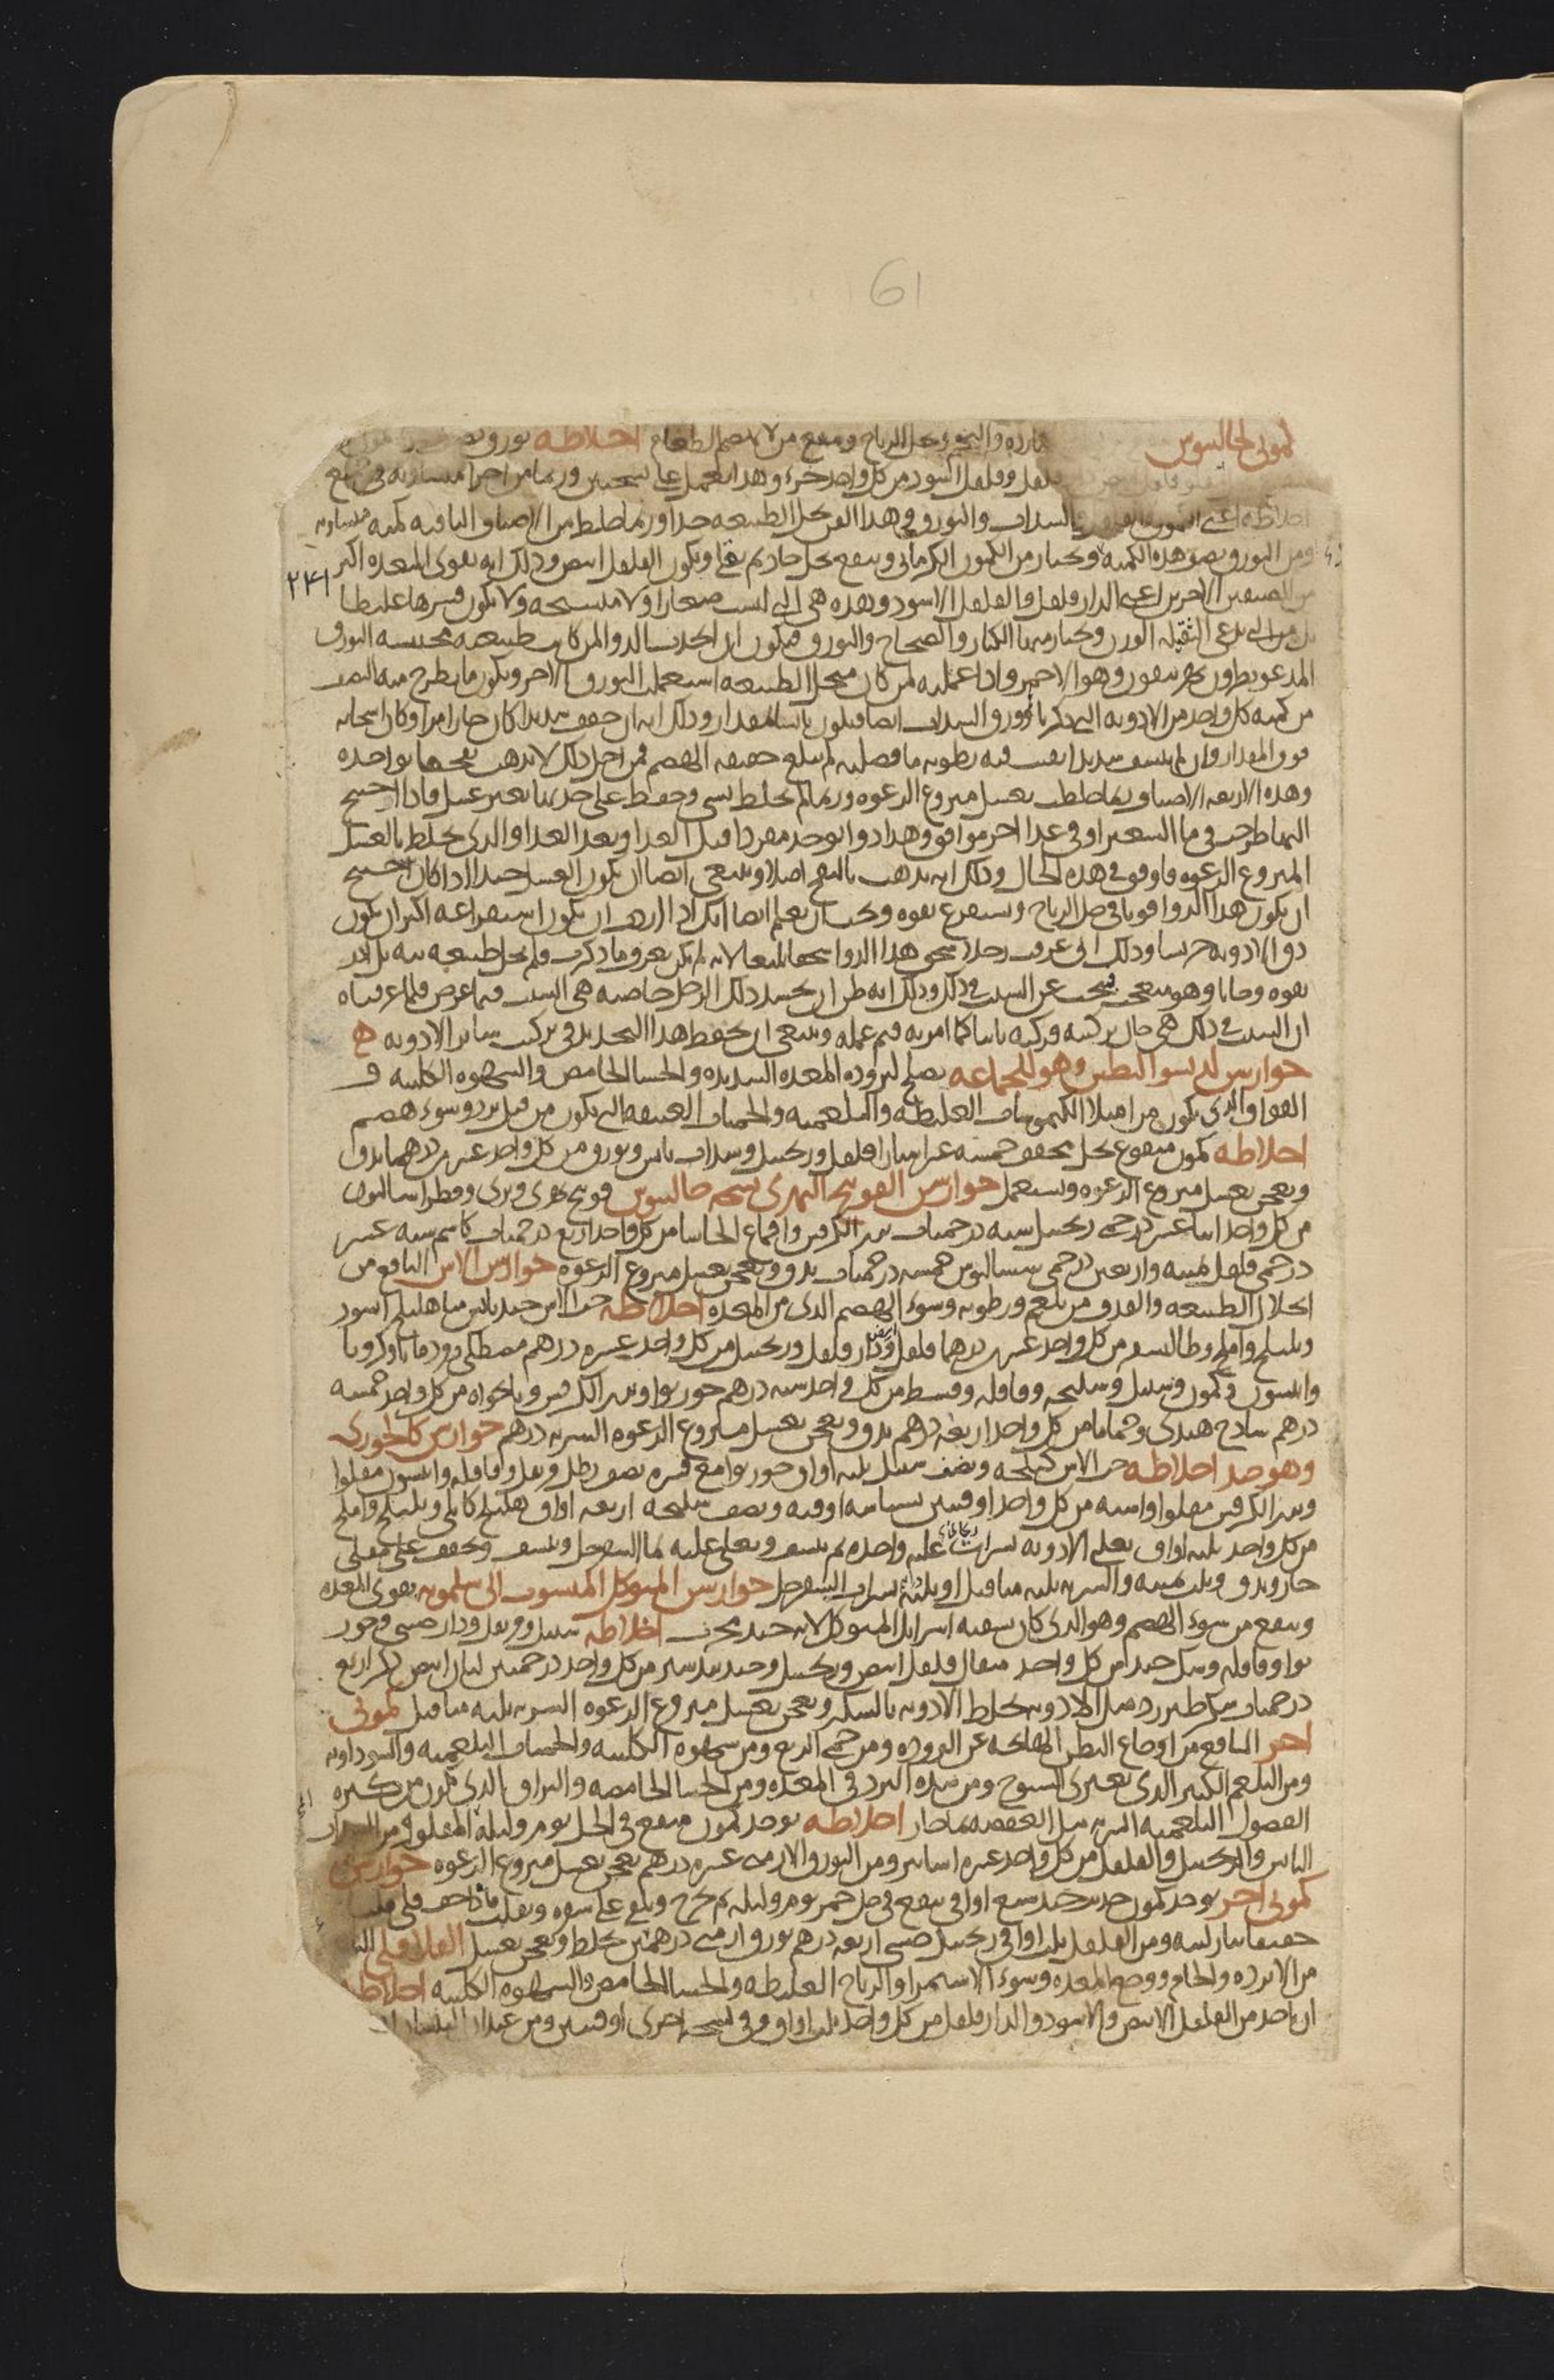 61
كموني لجالينوس بارده والبحر ويحل الرياح وينفع من لا ينهضم الطعام اخلاطه بورق
فلفل وفلفل اسود من كل واحد جزء وهذا يعمل على نسختين وربما من اجزا متساويه في جميع
اخلاطه اعني الكمون والفلفل والسذاب والبورق وهذا الفن يحل الطبيعه جدا وربما خلط من الاصناف الباقيه كميه متساويه
ومن البورق نصف هذه الكميه ويختار من الكمون الكرماني وينقع بخل حاد ثم يقلى ويكون الفلفل ابيض وذلك انه يقوي المعده اكثر
٢٣١
من الصنفين الاخرين اعني الدارفلفل والفلفل الاسود وهذه هي التي ليست صغارا ولا متشنجه ولا يكون قشرها غليظا
بل من التي تدعى الثقيله الوزن ويختار منها الكبار والصحاح والبورق فيكون ان اتخذت الدوا لمن كانت طبيعته محتبسه البورق
المدعو نطرون وهو الاحمر واذا عملته لمن كان منحل الطبيعه استعملت البورق الاخر ويكون ما يطرح منه النصف
من كميه كل واحد من الادويه التي ذكرنا وورق السذاب ايضا فيكون بالمقدار وذلك انه ان جفف شديدا كان حارا مرا وكان اسخانه
فوق المقدار وان لم ييبس شديدا بقيت فيه رطوبه ما فضليه لم تبلغ حقيقه الهضم فمن اجل ذلك لا تذهب نفختها بواحده
وهذه الاربعه الاصناف ربما خلطت بعسل منزوع الرغوه وربما لم تخلط بشي وحفظ على حدتها بغير عسل فاذا احتيج
اليها طرحت في ما الشعير او في غذا اخر موافق وهذا دوا يوخذ مفردا قبل الغدا وبعد الغدا والذي يخلط بالعسل
المنزوع الرغوه فاوفق في هذه الحال وذلك انه يذهب بالنفخ اصلا وينبغي ايضا ان يكون العسل جيدا اذا كان احتيج
ان يكون هذا الدوا قويا في حل الرياح ويستفرغ بقوه ويجب ان تعلم ايضا انك اذا اردت ان يكون استفراغه اكثر ان يكون
دق الادويه جريشا وذلك اني عرفت رجلا سحق هذا الدوا سحقا بليغا لانه لم يكن يعرف ما ذكرت فلم يحل طبيعته بته بل ادر
بوله وجاءنا وهو متعجب يبحث عن السبب في ذلك وذلك انه ظن ان بجسد ذلك الرجل خاصه هي السبب فيما عرض فلما عرفناه
ان السبب في ذلك هي حال تركيبه فركبه ثانيا كما امر به فتم عمله وينبغي ان يحفظ هذا التحذير في تركيب ساير الادويه
جوارشن لديسوالنطس وهو للجماعه يصلح لبروده المعده الشديده والجشا الحامض والشهوه الكلبيه و
الفواق الذي يكون من امتلا الكيموسات الغليظه والبلغميه والحميات العتيقه التي تكون من قبل برد وسوء هضم
اخلاطه كمون منقوع بخل مجفف خمسه عشر استارا فلفل وزنجبيل وسذاب يابس وبورق من كل واحد عشرين درهما يدق
ويعجن بعسل منزوع الرغوه ويستعمل جوارشن الفوتنج النهري نسخه جالينوس فوتنج نهري وبري وفطراساليون
من كل واحد اثنا عشر درخمي زنجبيل سته درخميات بزر الكرفس واقماع الحاشا من كل واحد اربع درخميات كاشم سته عشر
درخمي فلفل ثمنيه واربعين درخمي سيساليوس خمسه درخميات يدق ويعجن بعسل منزوع الرغوه جوارش الاس النافع من
انحلال الطبيعه والقذف من بلغم ورطوبه وسوء الهضم الذي من المعده اخلاطه حب الاس جيد يابس منا هليلج اسود
وبليلج واملج وطاليسفر من كل واحد عشرين درهما فلفل ابيض ودارفلفل وزنجبيل من كل واحد عشره دراهم مصطكى ودوقوا وكرويا
وانيسون وكمون وسنبل وسليخه وقاقله وقسط من كل واحد سته دراهم جوز بوا وبزر الكرفس ونانخواه من كل واحد خمسه
دراهم ساذج هندي وحماما من كل واحد اربعه دراهم يدق ويعجن بعسل منزوع الرغوه الشربه درهم جوارشن كالخوزي
وهو جيد اخلاطه حب الاس كيلجه ونصف سنبل ثلثه اواق جوز بوا مع قشره نصف رطل وقرنفل وقاقله وانيسون مقلوا
وبزر الكرفس مقلوا واشنه من كل واحد اوقيتين بسباسه اوقيه ونصف سليخه اربعه اواق هليلج كابلي وبليلج واملج
من كل واحد ثلثه اواق تغلى الادويه بشراب ريحاني غليه واحده ثم ينشف ويغلى عليه بما السفرجل وينشف ويجفف على مقلى
حار ويدق وثلث ثمنيه والشربه ثلثه مثاقيل او ثلثه بشراب السفرجل جوارشن المتوكل المنسوب الى سلمويه يقوي المعده
وينفع من سوء الهضم وهو الذي كان يسقيه اسرائيل المتوكل لانه جيد مجرب اخلاطه سنبل وقرنفل ودارصيني وجوز
بوا وقاقله وسك جيد من كل واحد مثقال فلفل ابيض وزنجبيل وجندبيدستر من كل واحد درخميتين لبان ابيض ذكر اربع
درخميات سكر طبرزد مثل الادويه تخلط الادويه بالسكر ويعجن بعسل منزوع الرغوه الشربه ثلثه مثاقيل كموني
اخر النافع من اوجاع البطن الهائجه عن البروده ومن حمى الربع ومن شهوه الكلبيه والحميات البلغميه والسوداويه
ومن البلغم الكثير الذي يعتري الشيوخ ومن شده البرد في المعده ومن الجشا الحامضه والبزاق الذي يكون من كثره
الفضول البلغميه الشربه مثل العفصه بما حار اخلاطه يوخذ كمون منقع في الخل يوم وليله المقلو ومن السذاب
اليابس والزنجبيل والفلفل من كل واحد عشره اساتير ومن البورق الارمني عشره دراهم يعجن بعسل منزوع الرغوه جوارشن
كموني اخر يوخذ كمون حديث جيد سبع اواقي ينقع في خل خمر يوم وليله ثم يخرج ويلقى على مسح ويقلب فاذا جف قلي قليا
خفيفا بنار لينه ومن الفلفل ثلث اواقي زنجبيل صيني اربعه دراهم بورق ارمني درهمين يخلط ويعجن بعسل الفلافلي
من الابرده والخام ووجع المعده وسوء الاستمرا والرياح الغليظه والجشا الحامض والشهوه الكلبيه اخلاطه
ان ياخذ من الفلفل الابيض والاسود والدارفلفل من كل واحد ثلث اواق وفي نسخه اخرى اوقيتين ومن عيدان البلسان